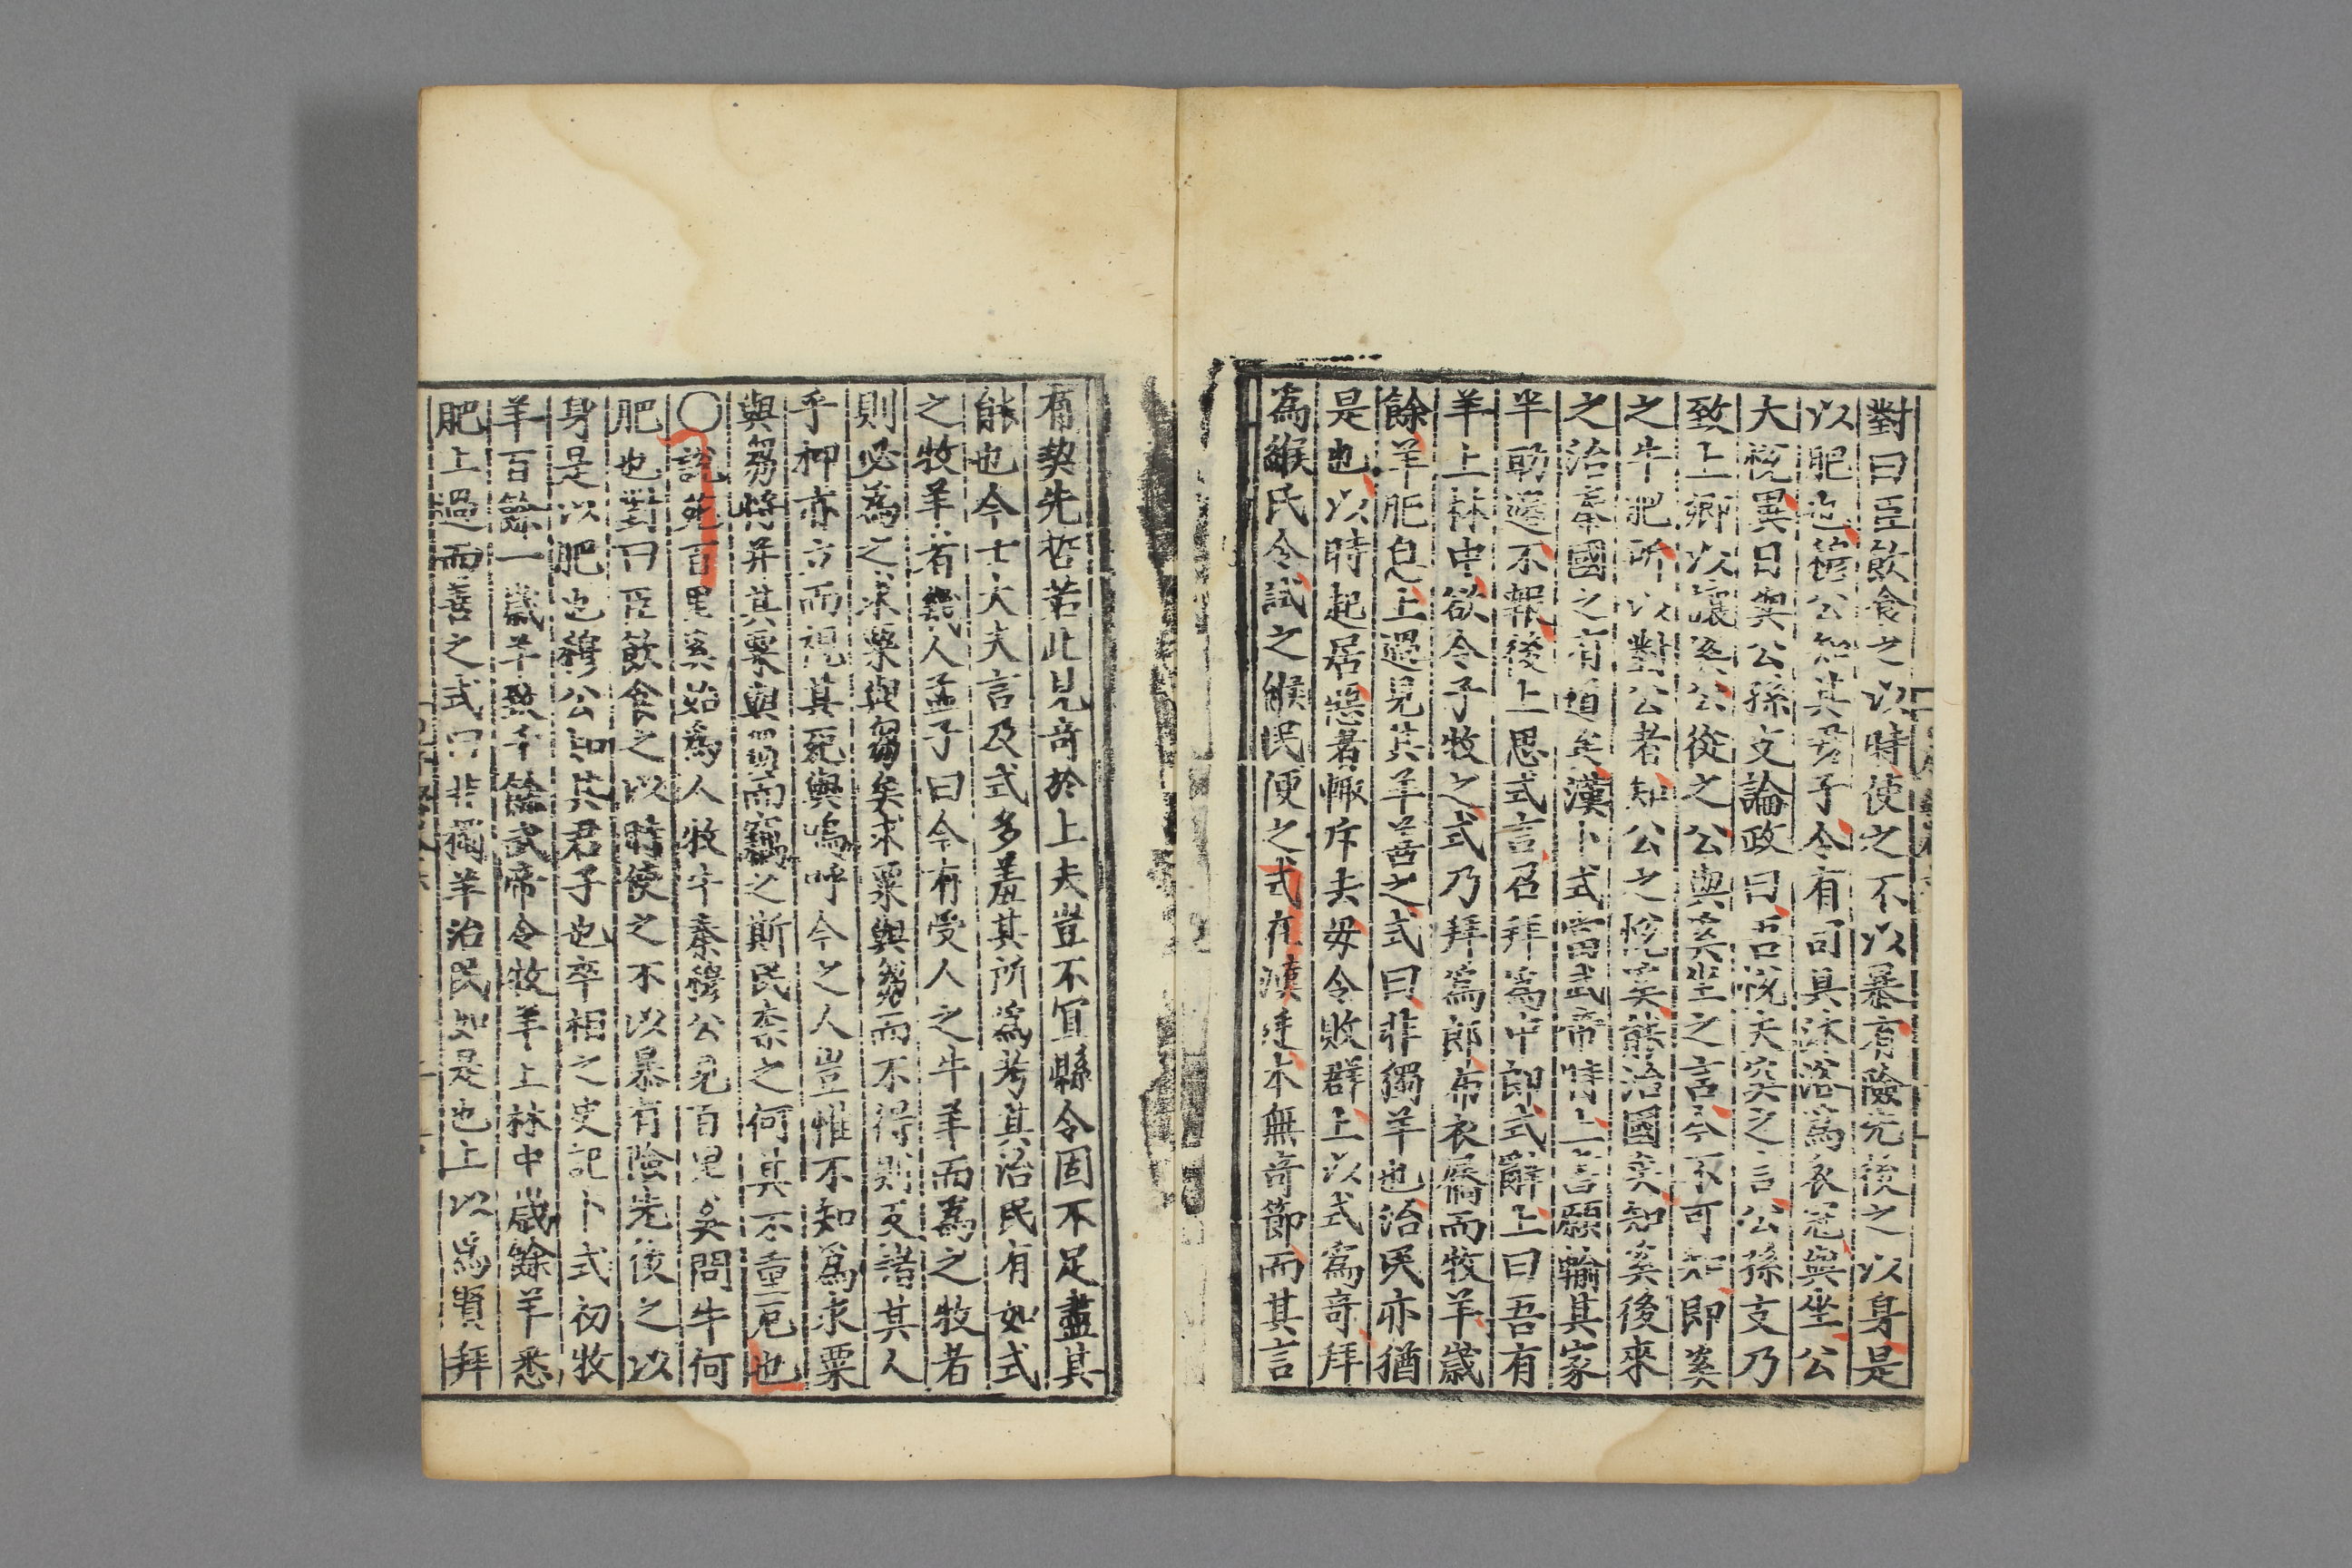 對曰臣飲食之以時使之不以暴有險先後之以身是
以肥也穆公知其君子令有司具沐浴為衣冠與坐公
大悅異日與公孫支論政曰吾悅夫奚之言公孫支乃
致上卿以讓奚公從之公與奚坐之言今不可知即奚
之牛肥所以對公者知公之悅奚能治國奚知奚後來
之治秦國之有道矣漢卜式當武帝時上言願輸其家
半助邊不報後上思式言召拜為中郎式辭上曰吾有
羊上林中欲令子牧之式乃拜為郎布衣屩而牧羊歲
餘羊肥息上過見其羊善之式曰非獨羊也治民亦猶
是也以時起居惡者輒斥去毋令敗群上以式為奇拜
為緱氏令試之緱民便之式在漢廷本無奇節而其言
有契先哲若此見奇於上夫豈不宜縣令固不足盡其
能也今士大夫言及式多羞其所為考其治民有如式
之牧羊者幾人孟子曰今有受人之牛羊而為之牧者
則必為之求粟與芻矣求粟與芻而不得則反諸其人
乎抑亦立而視其死與嗚呼今之人豈惟不知為求粟
與芻將并其粟與芻而竊之斯民柰之何其不重厄也
○說苑百里奚始為人牧牛秦穆公見百里奚問牛何
肥也對曰臣飲食之以時使之不以暴有險先後之以
身是以肥也穆公知其君子也卒相之史記卜式初牧
羊百餘一歲羊致千餘武帝令牧羊上林中歲餘羊悉
肥上過而善之式曰非獨羊治民如是也上以為賢拜